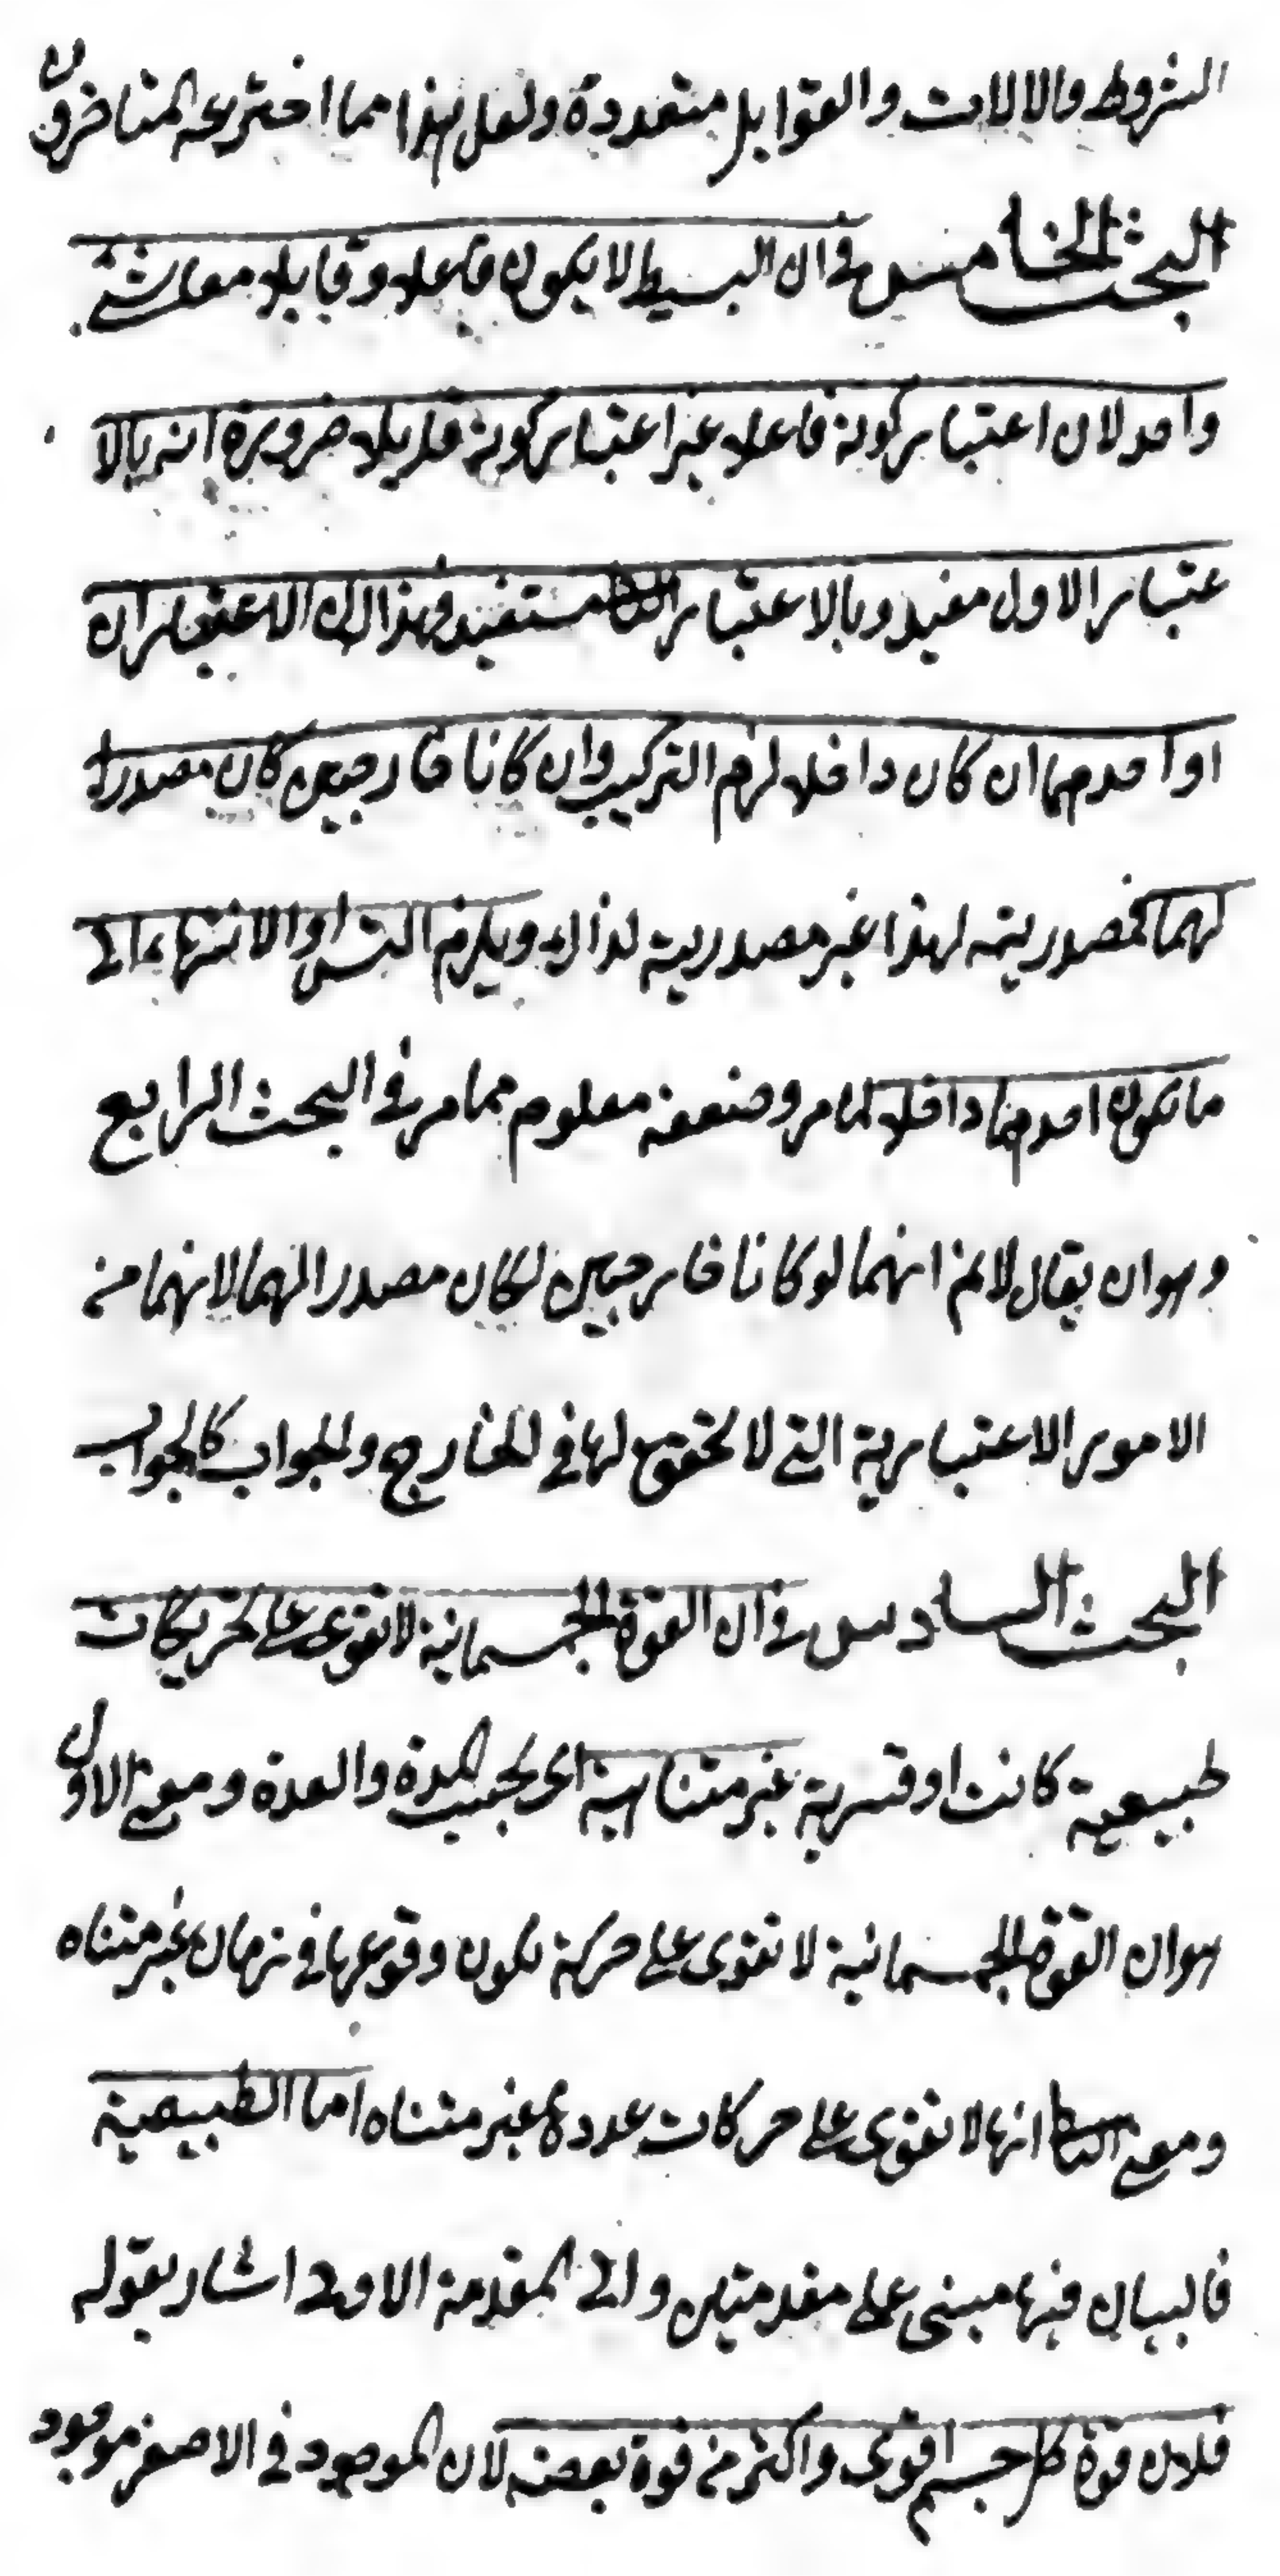 الشروط والالات والقوابل متعددة ولعل هذا مما اخترعه المتاخرون
البحث الخامس في ان البسيط لا يكون فاعلا وقابلا معا لشئ
واحد لان اعتبار كونه فاعلا غير اعتبار كونه قابلا ضرورة انه بالا
عتبار الاول مفيد وبالاعتبار الثاني مستفيد فهذان الاعتباران
او احدهما ان كان داخلا لزم التركيب وان كانا خارجين كان مصدرا
لهما فمصدريته لهذا غير مصدرية لذاك ويلزم التس او الانتهاء الى
ما يكون احدهما داخلا لما مر وضعفه معلوم مما مر في البحث الرابع
وهو ان يقال لانم انهما لو كانا خارجين لكان مصدرا لهما لانهما من
الامور الاعتبارية التي لا تحقق لها في الخارج والجواب كالجواب
البحث السادس في ان القوة الجسمانية لا تقوى على تحريكات
طبيعية كانت او قسرية غير متناهية اي بحسب المدة والعدة ومعنى الاول
هو ان القوة الجسمانية لا تقوى على حركة يكون وقوعها في زمان غير متناه
ومعنى الثاني انها لا تقوى على حركات عددها غير متناه اما الطبيعية
فالبيان فيها مبنى على مقدمتين والى المقدمة الاولى اشار بقوله
فلان قوة كل جسم اقوى واكثر من قوة بعضه لان الموجود في الاصغر موجود